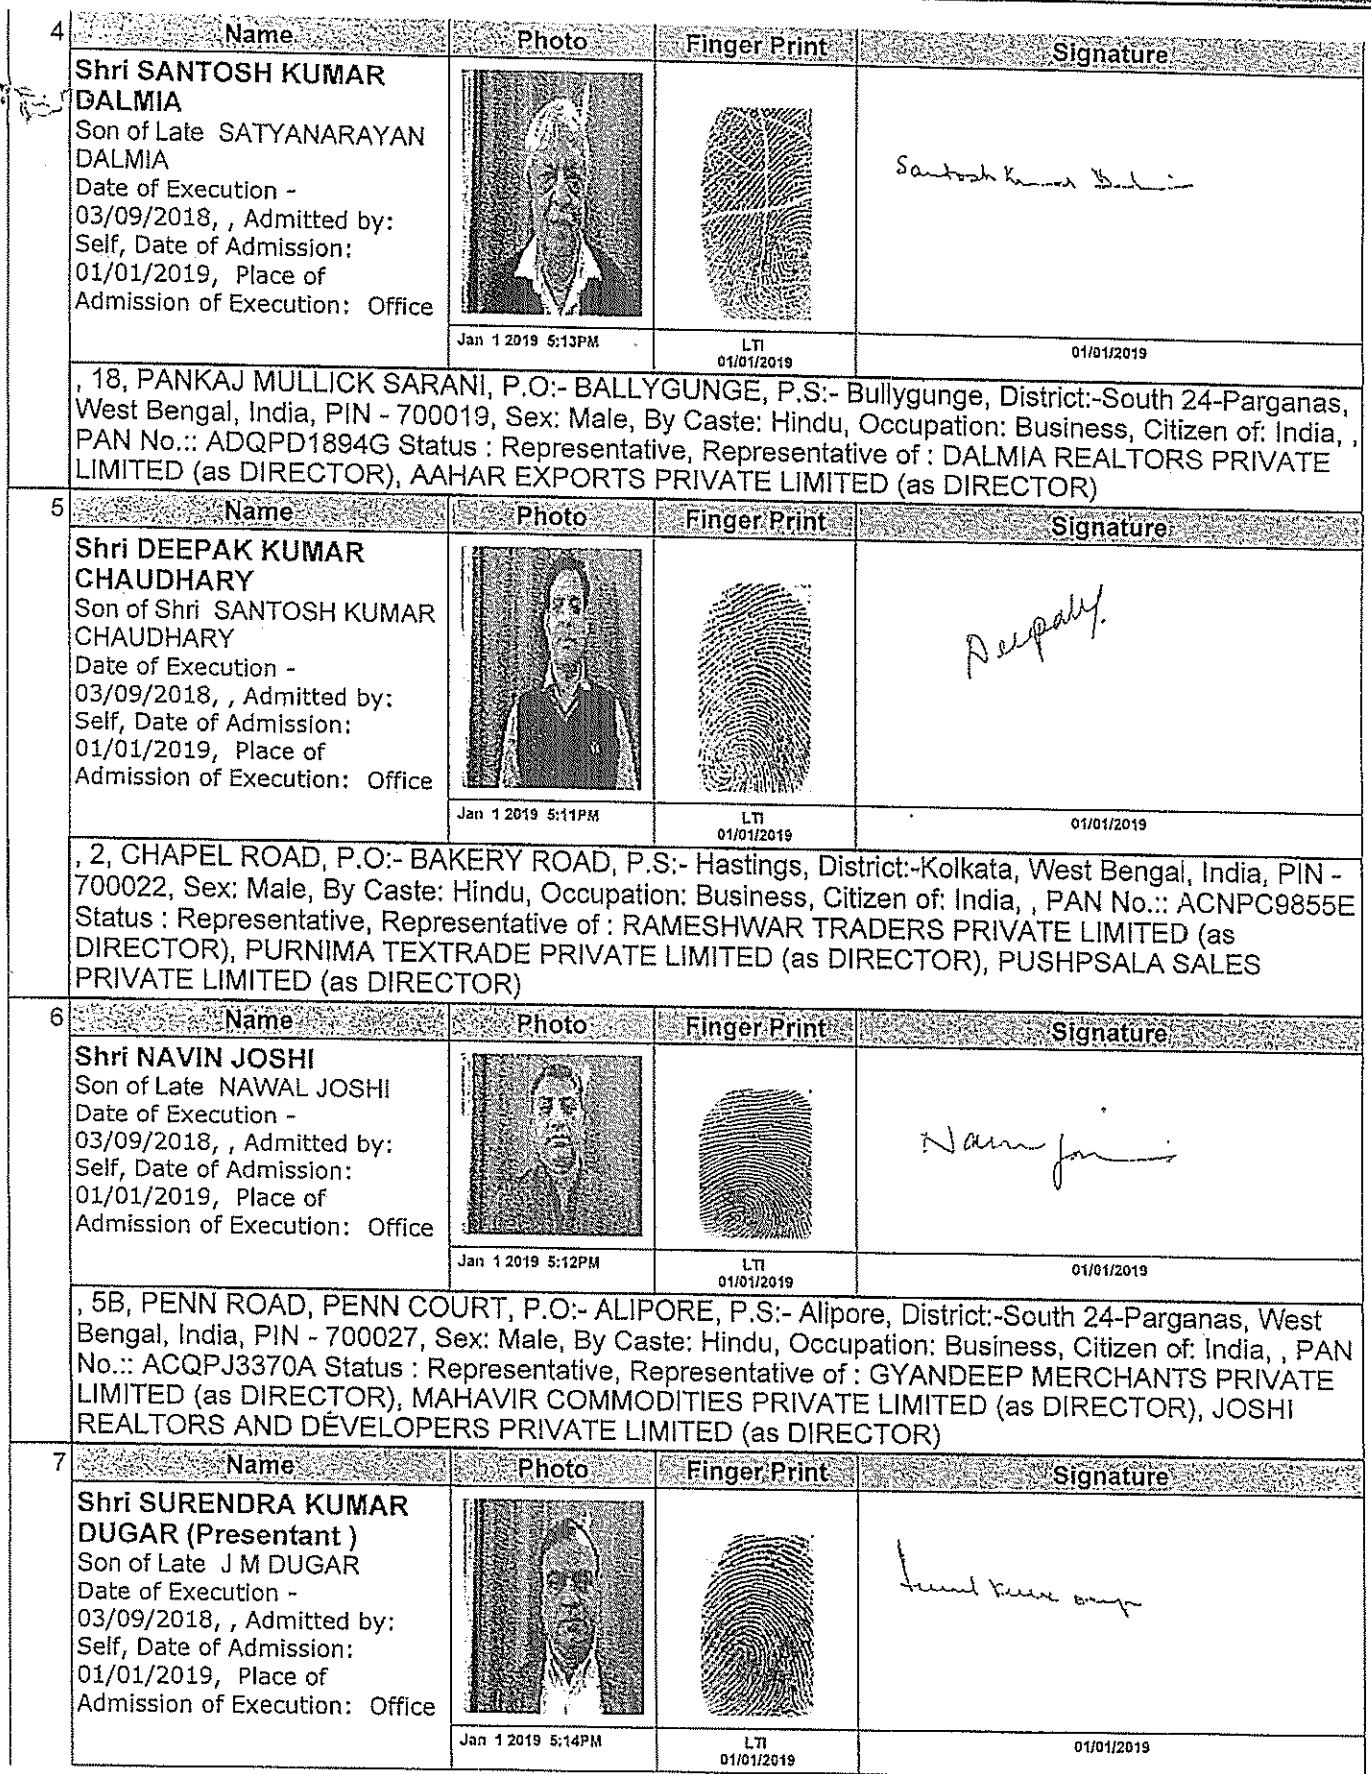 4 Name Photo Finger Print Signature
Shri SANTOSH KUMAR
DALMIA
Son of Late SATYANARAYAN
DALMIA
Date of Execution -
03/09/2018, , Admitted by:
Self, Date of Admission:
01/01/2019, Place of
Admission of Execution: Office
Santosh Kumar Dalmia
Jan 1 2019 5:13PM LTI 01/01/2019
01/01/2019
, 18, PANKAJ MULLICK SARANI, P.O:- BALLYGUNGE, P.S:- Bullygunge, District:-South 24-Parganas,
West Bengal, India, PIN - 700019, Sex: Male, By Caste: Hindu, Occupation: Business, Citizen of: India, ,
PAN No.:: ADQPD1894G Status : Representative, Representative of : DALMIA REALTORS PRIVATE
LIMITED (as DIRECTOR), AAHAR EXPORTS PRIVATE LIMITED (as DIRECTOR)
5 Name Photo Finger Print Signature
Shri DEEPAK KUMAR
CHAUDHARY
Son of Shri SANTOSH KUMAR
CHAUDHARY
Date of Execution -
03/09/2018, , Admitted by:
Self, Date of Admission:
01/01/2019, Place of
Admission of Execution: Office
Jan 1 2019 5:11PM LTI 01/01/2019
01/01/2019
, 2, CHAPEL ROAD, P.O:- BAKERY ROAD, P.S:- Hastings, District:-Kolkata, West Bengal, India, PIN -
700022, Sex: Male, By Caste: Hindu, Occupation: Business, Citizen of: India, , PAN No.:: ACNPC9855E
Status : Representative, Representative of : RAMESHWAR TRADERS PRIVATE LIMITED (as
DIRECTOR), PURNIMA TEXTRADE PRIVATE LIMITED (as DIRECTOR), PUSHPSALA SALES
PRIVATE LIMITED (as DIRECTOR)
6 Name Photo Finger Print Signature
Shri NAVIN JOSHI
Son of Late NAWAL JOSHI
Date of Execution -
03/09/2018, , Admitted by:
Self, Date of Admission:
01/01/2019, Place of
Admission of Execution: Office
Jan 1 2019 5:12PM LTI 01/01/2019
01/01/2019
, 5B, PENN ROAD, PENN COURT, P.O:- ALIPORE, P.S:- Alipore, District:-South 24-Parganas, West
Bengal, India, PIN - 700027, Sex: Male, By Caste: Hindu, Occupation: Business, Citizen of: India, , PAN
No.:: ACQPJ3370A Status : Representative, Representative of : GYANDEEP MERCHANTS PRIVATE
LIMITED (as DIRECTOR), MAHAVIR COMMODITIES PRIVATE LIMITED (as DIRECTOR), JOSHI
REALTORS AND DEVELOPERS PRIVATE LIMITED (as DIRECTOR)
7 Name Photo Finger Print Signature
Shri SURENDRA KUMAR
DUGAR (Presentant )
Son of Late J M DUGAR
Date of Execution -
03/09/2018, , Admitted by:
Self, Date of Admission:
01/01/2019, Place of
Admission of Execution: Office
Jan 1 2019 5:14PM LTI 01/01/2019
01/01/2019